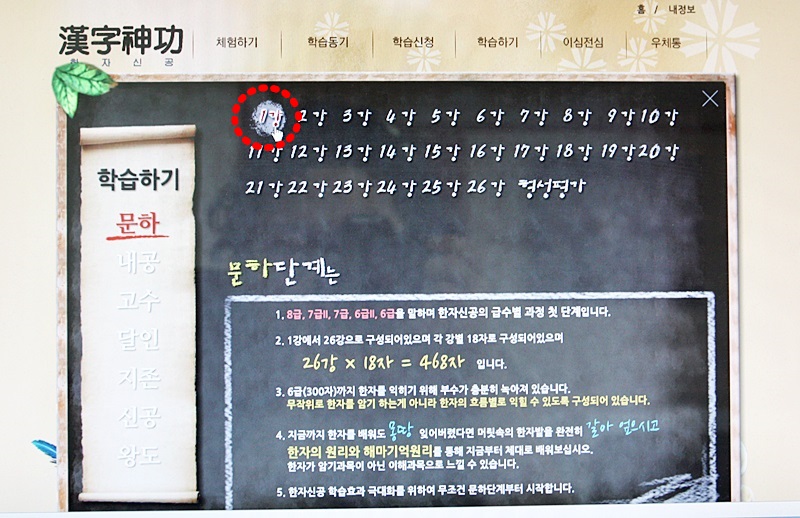 홈 / 내정보
漢字神功
한자신공
체험하기 학습동기 학습신청 학습하기 이심전심 우체통
1강 2강 3강 4강 5강 6강 7강 8강 9강 10강
11강 12강 13강 14강 15강 16강 17강 18강 19강 20강
21강 22강 23강 24강 25강 26강 형성평가
학습하기
문하
내공
고수
달인
지존
신공
왕도
문하단계는
1. 8급, 7급II, 7급, 6급II, 6급을 말하며 한자신공의 급수별 과정 첫 단계입니다.
2. 1강에서 26강으로 구성되어있으며 각 강별 18자로 구성되어있으며
26강 × 18자 = 468자 입니다.
3. 6급(300자)까지 한자를 익히기 위해 부수가 충분히 녹아져 있습니다.
무작위로 한자를 암기 하는게 아니라 한자의 흐름별로 익힐 수 있도록 구성되어 있습니다.
4. 지금까지 한자를 배워도 몽땅 잊어버렸다면 머릿속의 한자밭을 완전히 갈아 엎으시고
한자의 원리와 해마기억원리를 통해 지금부터 제대로 배워보십시오.
한자가 암기과목이 아닌 이해과목으로 느낄 수 있습니다.
5. 한자신공 학습효과 극대화를 위하여 무조건 문하단계부터 시작합니다.